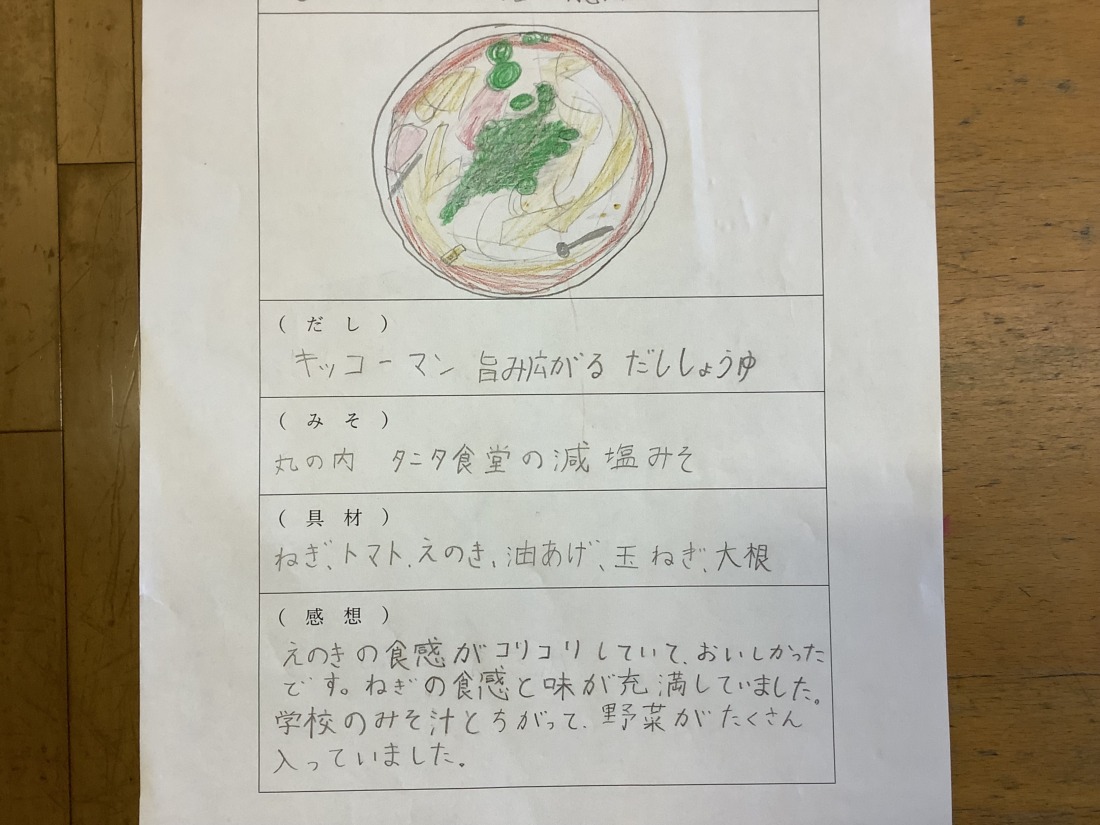 ( だ し )
キッコーマン 旨み広がる だししょうゆ
( み そ )
丸の内 タニタ食堂の減塩みそ
( 具 材 )
ねぎ、トマト、えのき、油あげ、玉ねぎ、大根
( 感 想 )
えのきの食感がコリコリしていて、おいしかった
です。ねぎの食感と味が充満していました。
学校のみそ汁とちがって、野菜がたくさん
入っていました。